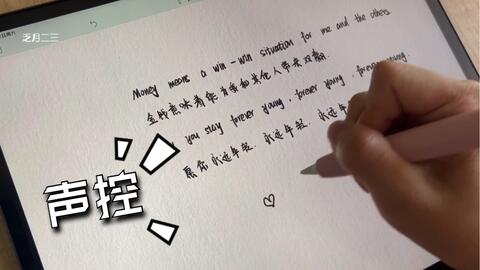 乏月二三
Money means a win-win situation for me and the others
金钱意味着能为我和其他人带来双赢
you stay forever young, forever young, forever young.
愿你永远年轻.永远年轻.永远年
声控